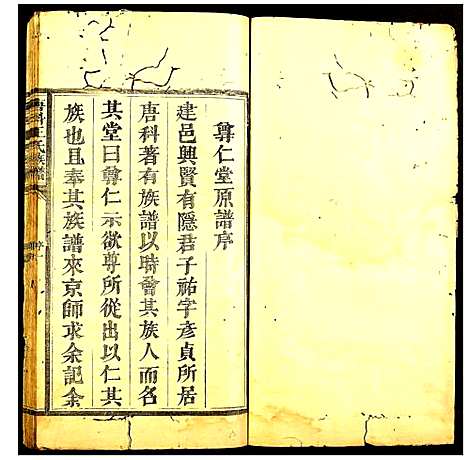 尊仁堂原譜序
建邑興賢有隱君子祐字彥貞所居
唐科著有族譜以時會其族人而名
其堂曰尊仁示欲尊所從出以仁其
族也且奉其族譜來京師求余記余